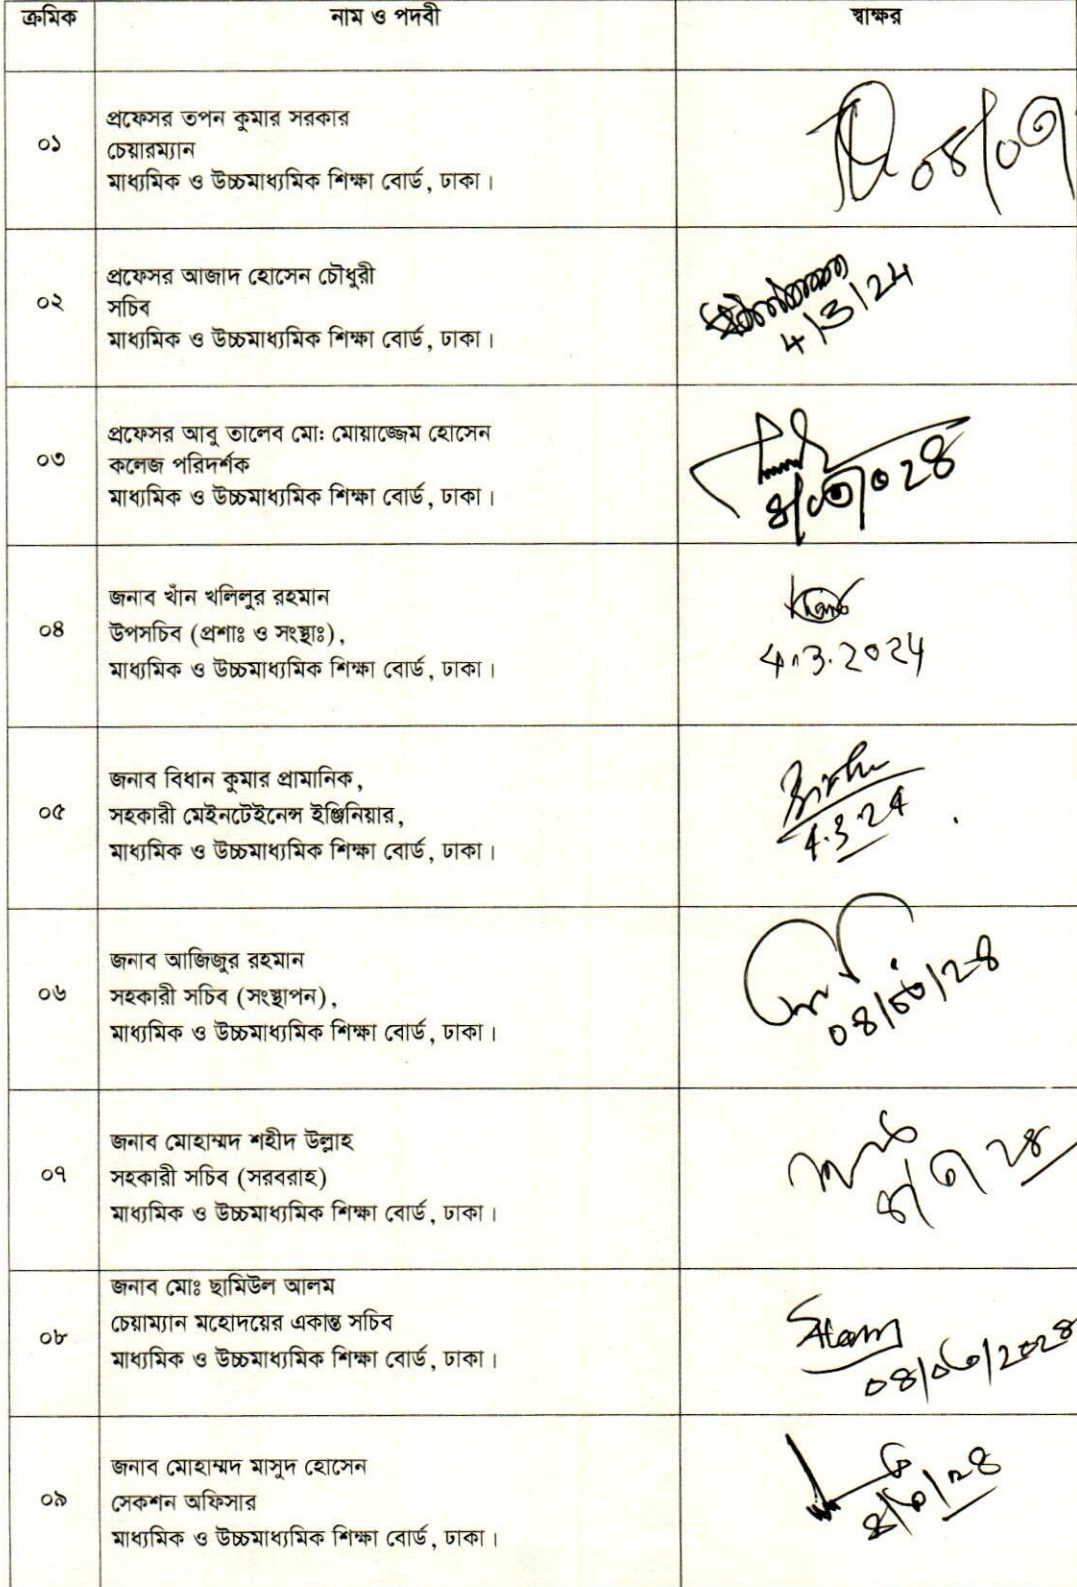 ক্রমিক নাম ও পদবী স্বাক্ষর
০১ প্রফেসর তপন কুমার সরকার
চেয়ারম্যান
মাধ্যমিক ও উচ্চমাধ্যমিক শিক্ষা বোর্ড, ঢাকা।
০৪/০৩
০২ প্রফেসর আজাদ হোসেন চৌধুরী
সচিব
মাধ্যমিক ও উচ্চমাধ্যমিক শিক্ষা বোর্ড, ঢাকা।
4/3/24
০৩ প্রফেসর আবু তালেব মো: মোয়াজ্জেম হোসেন
কলেজ পরিদর্শক
মাধ্যমিক ও উচ্চমাধ্যমিক শিক্ষা বোর্ড, ঢাকা।
০৪ জনাব খাঁন খলিলুর রহমান
উপসচিব (প্রশাঃ ও সংস্থাঃ),
মাধ্যমিক ও উচ্চমাধ্যমিক শিক্ষা বোর্ড, ঢাকা।
4.3.2024
০৫ জনাব বিধান কুমার প্রামানিক,
সহকারী মেইনটেইনেন্স ইঞ্জিনিয়ার,
মাধ্যমিক ও উচ্চমাধ্যমিক শিক্ষা বোর্ড, ঢাকা।
4.3.24
০৬ জনাব আজিজুর রহমান
সহকারী সচিব (সংস্থাপন),
মাধ্যমিক ও উচ্চমাধ্যমিক শিক্ষা বোর্ড, ঢাকা।
০৪/০৩/২৪
০৭ জনাব মোহাম্মদ শহীদ উল্লাহ
সহকারী সচিব (সরবরাহ)
মাধ্যমিক ও উচ্চমাধ্যমিক শিক্ষা বোর্ড, ঢাকা।
৪/৩ ২৪
০৮ জনাব মোঃ ছামিউল আলম
চেয়াম্যান মহোদয়ের একান্ত সচিব
মাধ্যমিক ও উচ্চমাধ্যমিক শিক্ষা বোর্ড, ঢাকা।
Alam
০৪/০৩/২০২৪
০৯ জনাব মোহাম্মদ মাসুদ হোসেন
সেকশন অফিসার
মাধ্যমিক ও উচ্চমাধ্যমিক শিক্ষা বোর্ড, ঢাকা।
৪/৩/২৪